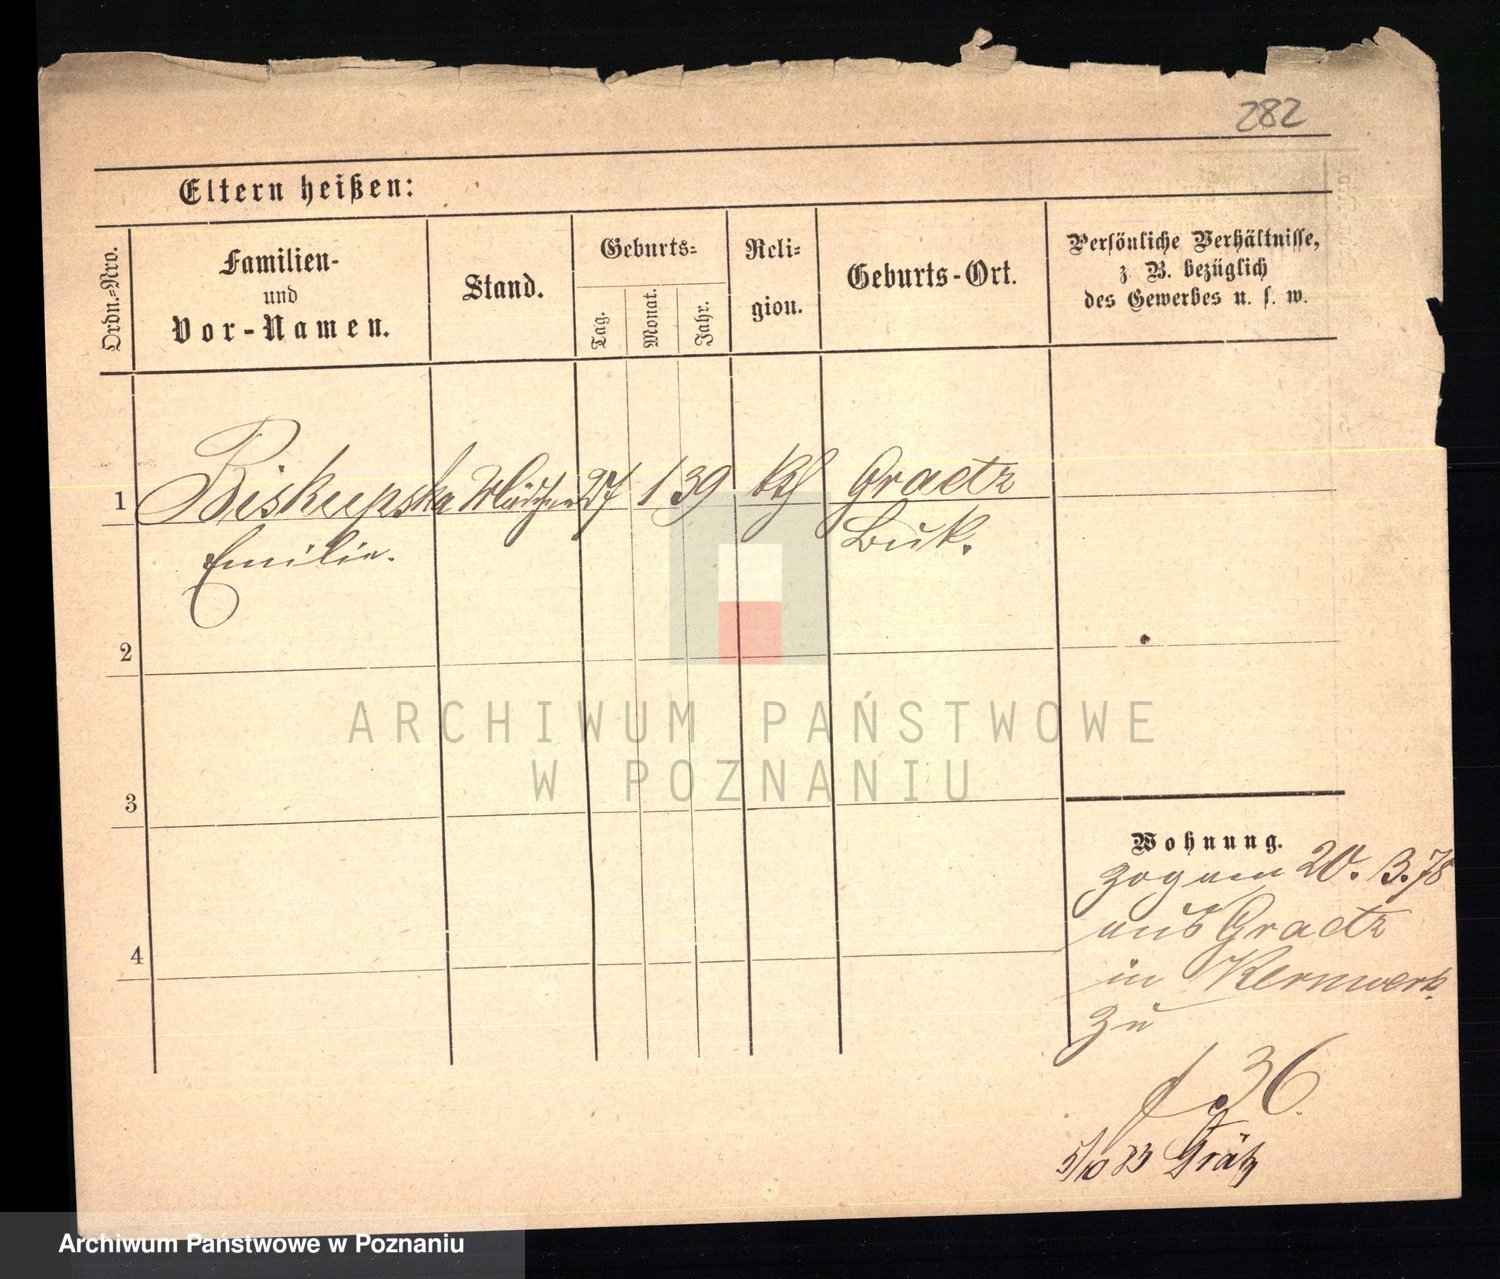 282
Eltern heißen:
Ordn.=Nro.
Familien-
und
Vor-Namen.
Stand.
Geburts=
Tag.
Monat.
Jahr.
Reli=
gion.
Geburts-Ort.
Persönliche Verhältnisse,
z. B. bezüglich
des Gewerbes u. s. w.
1 Biskupska Mädchen 27 1 39 kth Graetz
Emilie. Buk.
2
3
4
Wohnung.
zog am 20. 3. 78
aus Graetz
in Kernwerk
zu
36
5/10 83 Grätz
ARCHIWUM PAŃSTWOWE
W POZNANIU
Archiwum Państwowe w Poznaniu